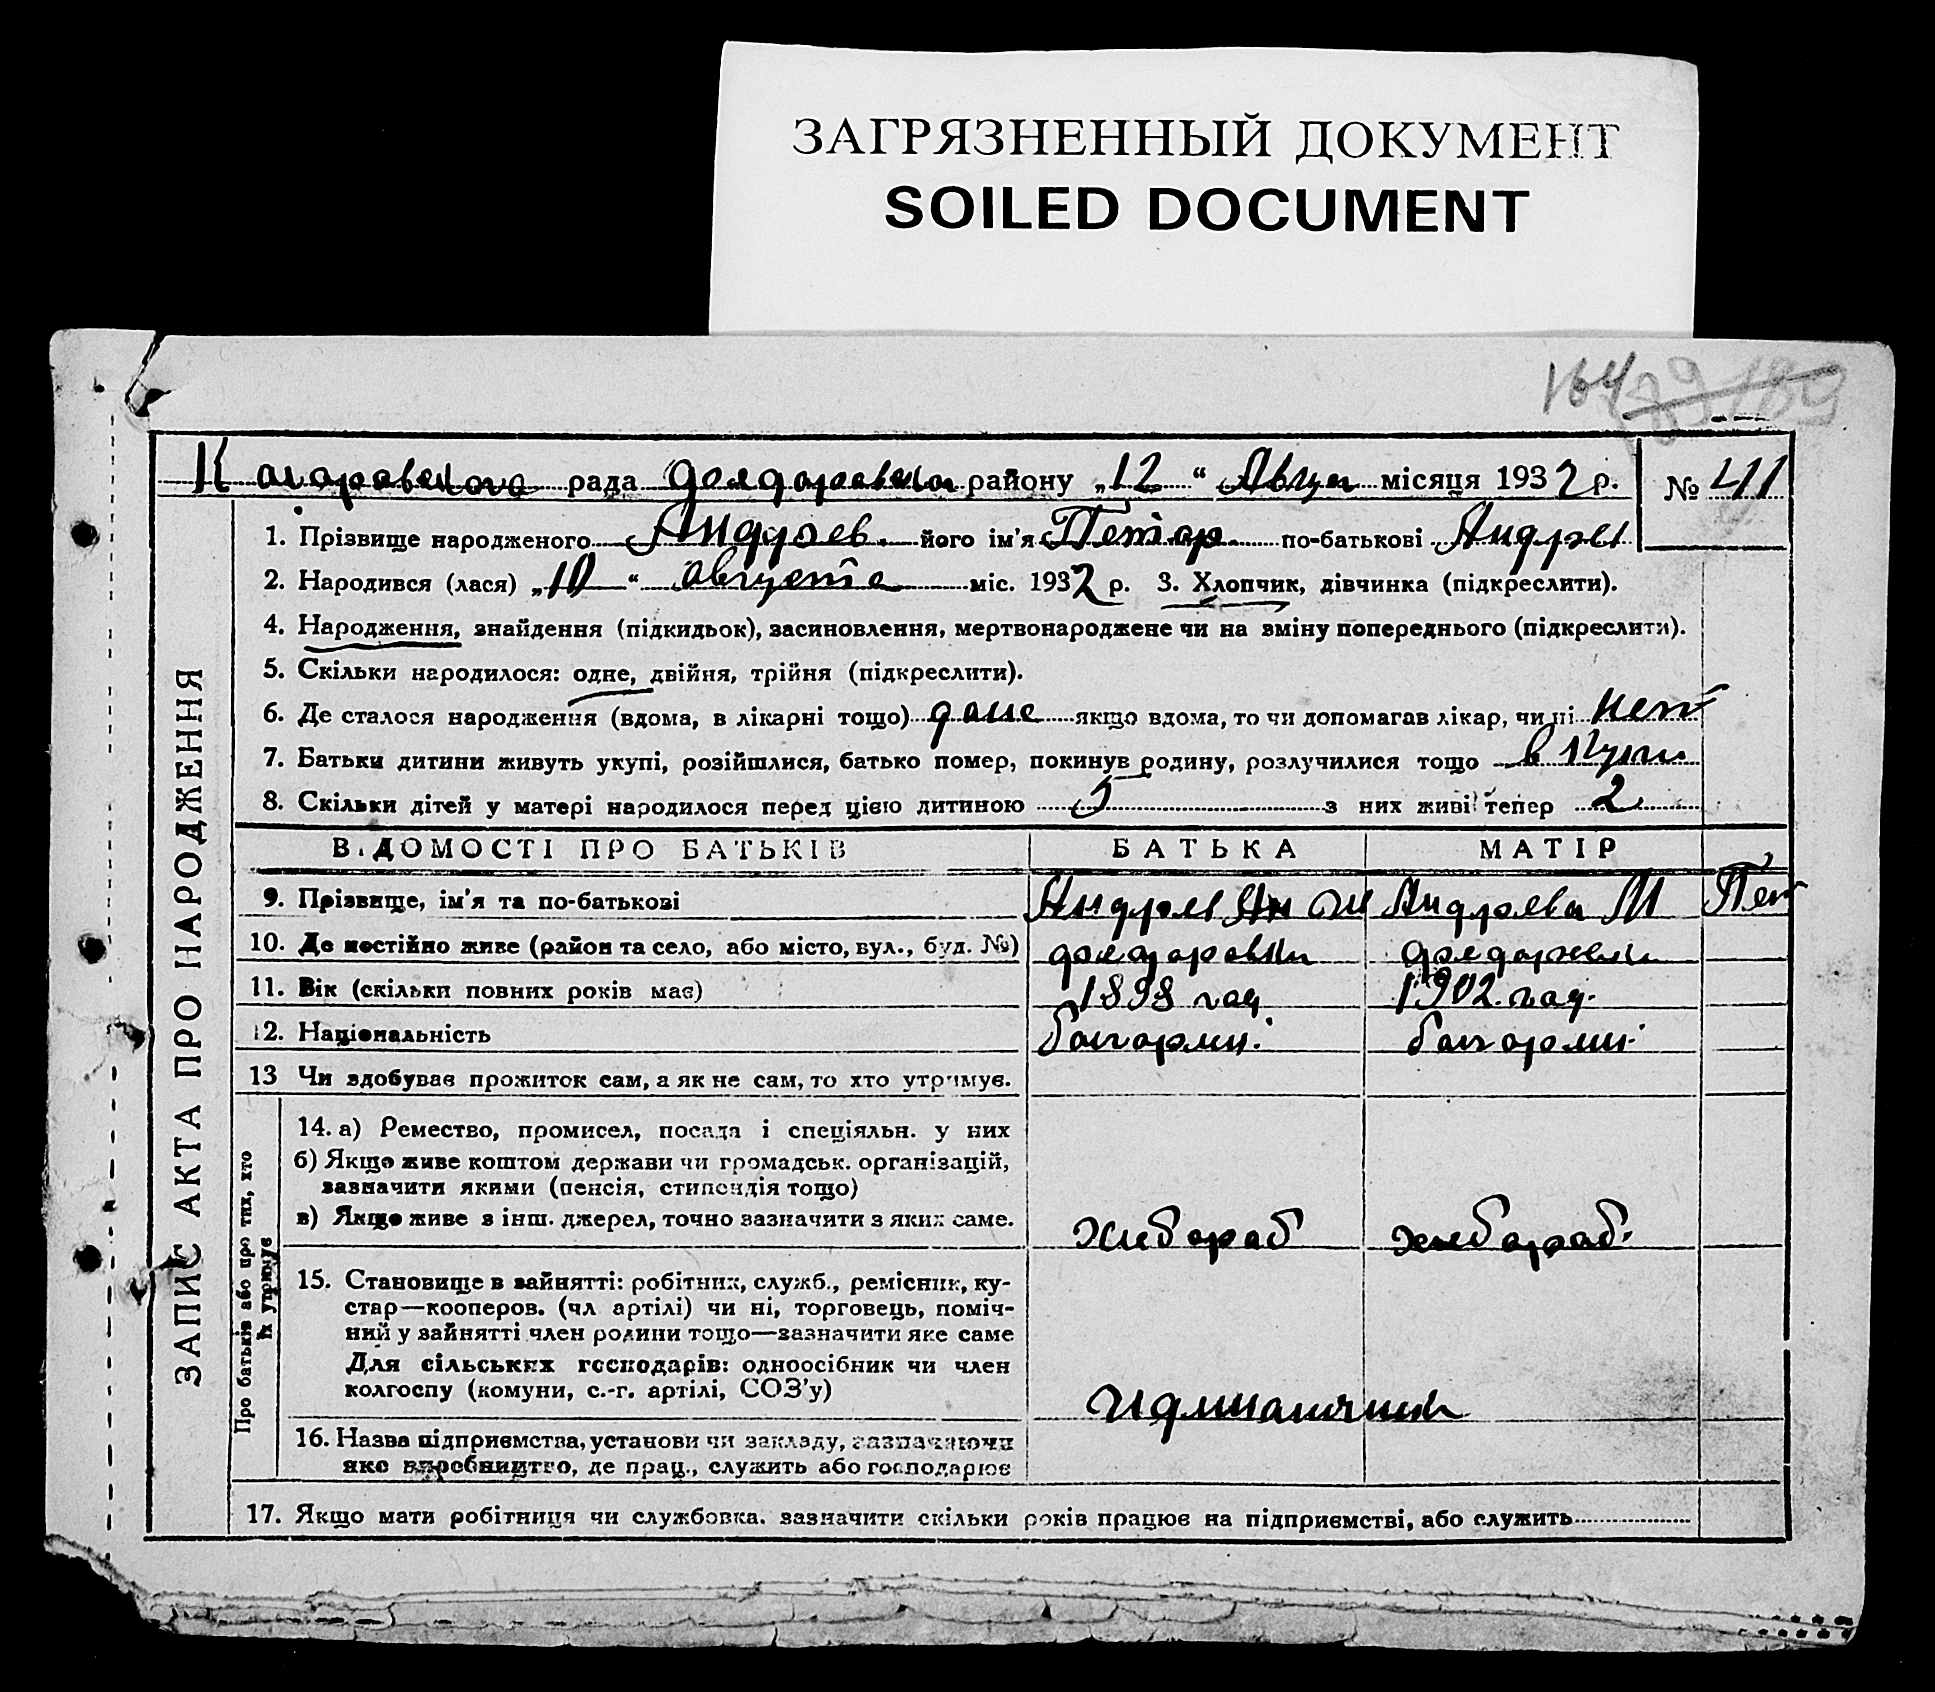 ЗАГРЯЗНЕННЫЙ ДОКУМЕНТ
SOILED DOCUMENT
164 189 189
рада району „12“ Август місяця 1932 р. №
1. Прізвище народженого Андреев його ім'я Петар по-батькові Андрея
2. Народився (лася) „10“ августа міс. 1932 р. 3. Хлопчик, дівчинка (підкреслити).
4. Народження, знайдення (підкидьок), засиновлення, мертвонароджене чи на зміну попереднього (підкреслити).
5. Скільки народилося: одне, двійня, трійня (підкреслити).
6. Де сталося народження (вдома, в лікарні тощо) доме якщо вдома, то чи допомагав лікар, чи ні нет
7. Батьки дитини живуть укупі, розійшлися, батько помер, покинув родину, розлучилися тощо
8. Скільки дітей у матері народилося перед цією дитиною 5 з них живі тепер 2
ЗАПИС АКТА ПРО НАРОДЖЕННЯ
ВІДОМОСТІ ПРО БАТЬКІВ БАТЬКА МАТІР
9. Прізвище, ім'я та по-батькові Андреев Андреева М Пет
10. Де постійно живе (район та село, або місто, вул., буд. №)
11. Вік (скільки повних років має) 1898 год 1902 год.
12. Національність
13 Чи здобував прожиток сам, а як не сам, то хто утримув.
Про батьків або про тих, хто їх утримує
14. а) Ремество, промисел, посада і спеціяльн. у них
б) Якщо живе коштом держави чи громадськ. організацій,
зазначити якими (пенсія, стипендія тощо)
в) Якщо живе з інш. джерел, точно зазначити з яких саме. хлебороб хлебороб.
15. Становище в зайнятті: робітник, служб., ремісник, ку-
стар—кооперов. (чл артілі) чи ні, торговець, поміч-
ний у зайнятті член родини тощо—зазначити яке саме
Для сільських господарів: одноосібник чи член
колгоспу (комуни, с.-г. артілі, СОЗ'у)
16. Назва підприємства, установи чи закладу, зазначаючи
яке виробництво, де прац., служить або господарює
17. Якщо мати робітниця чи службовка. зазначити скільки років працює на підприємстві, або служить